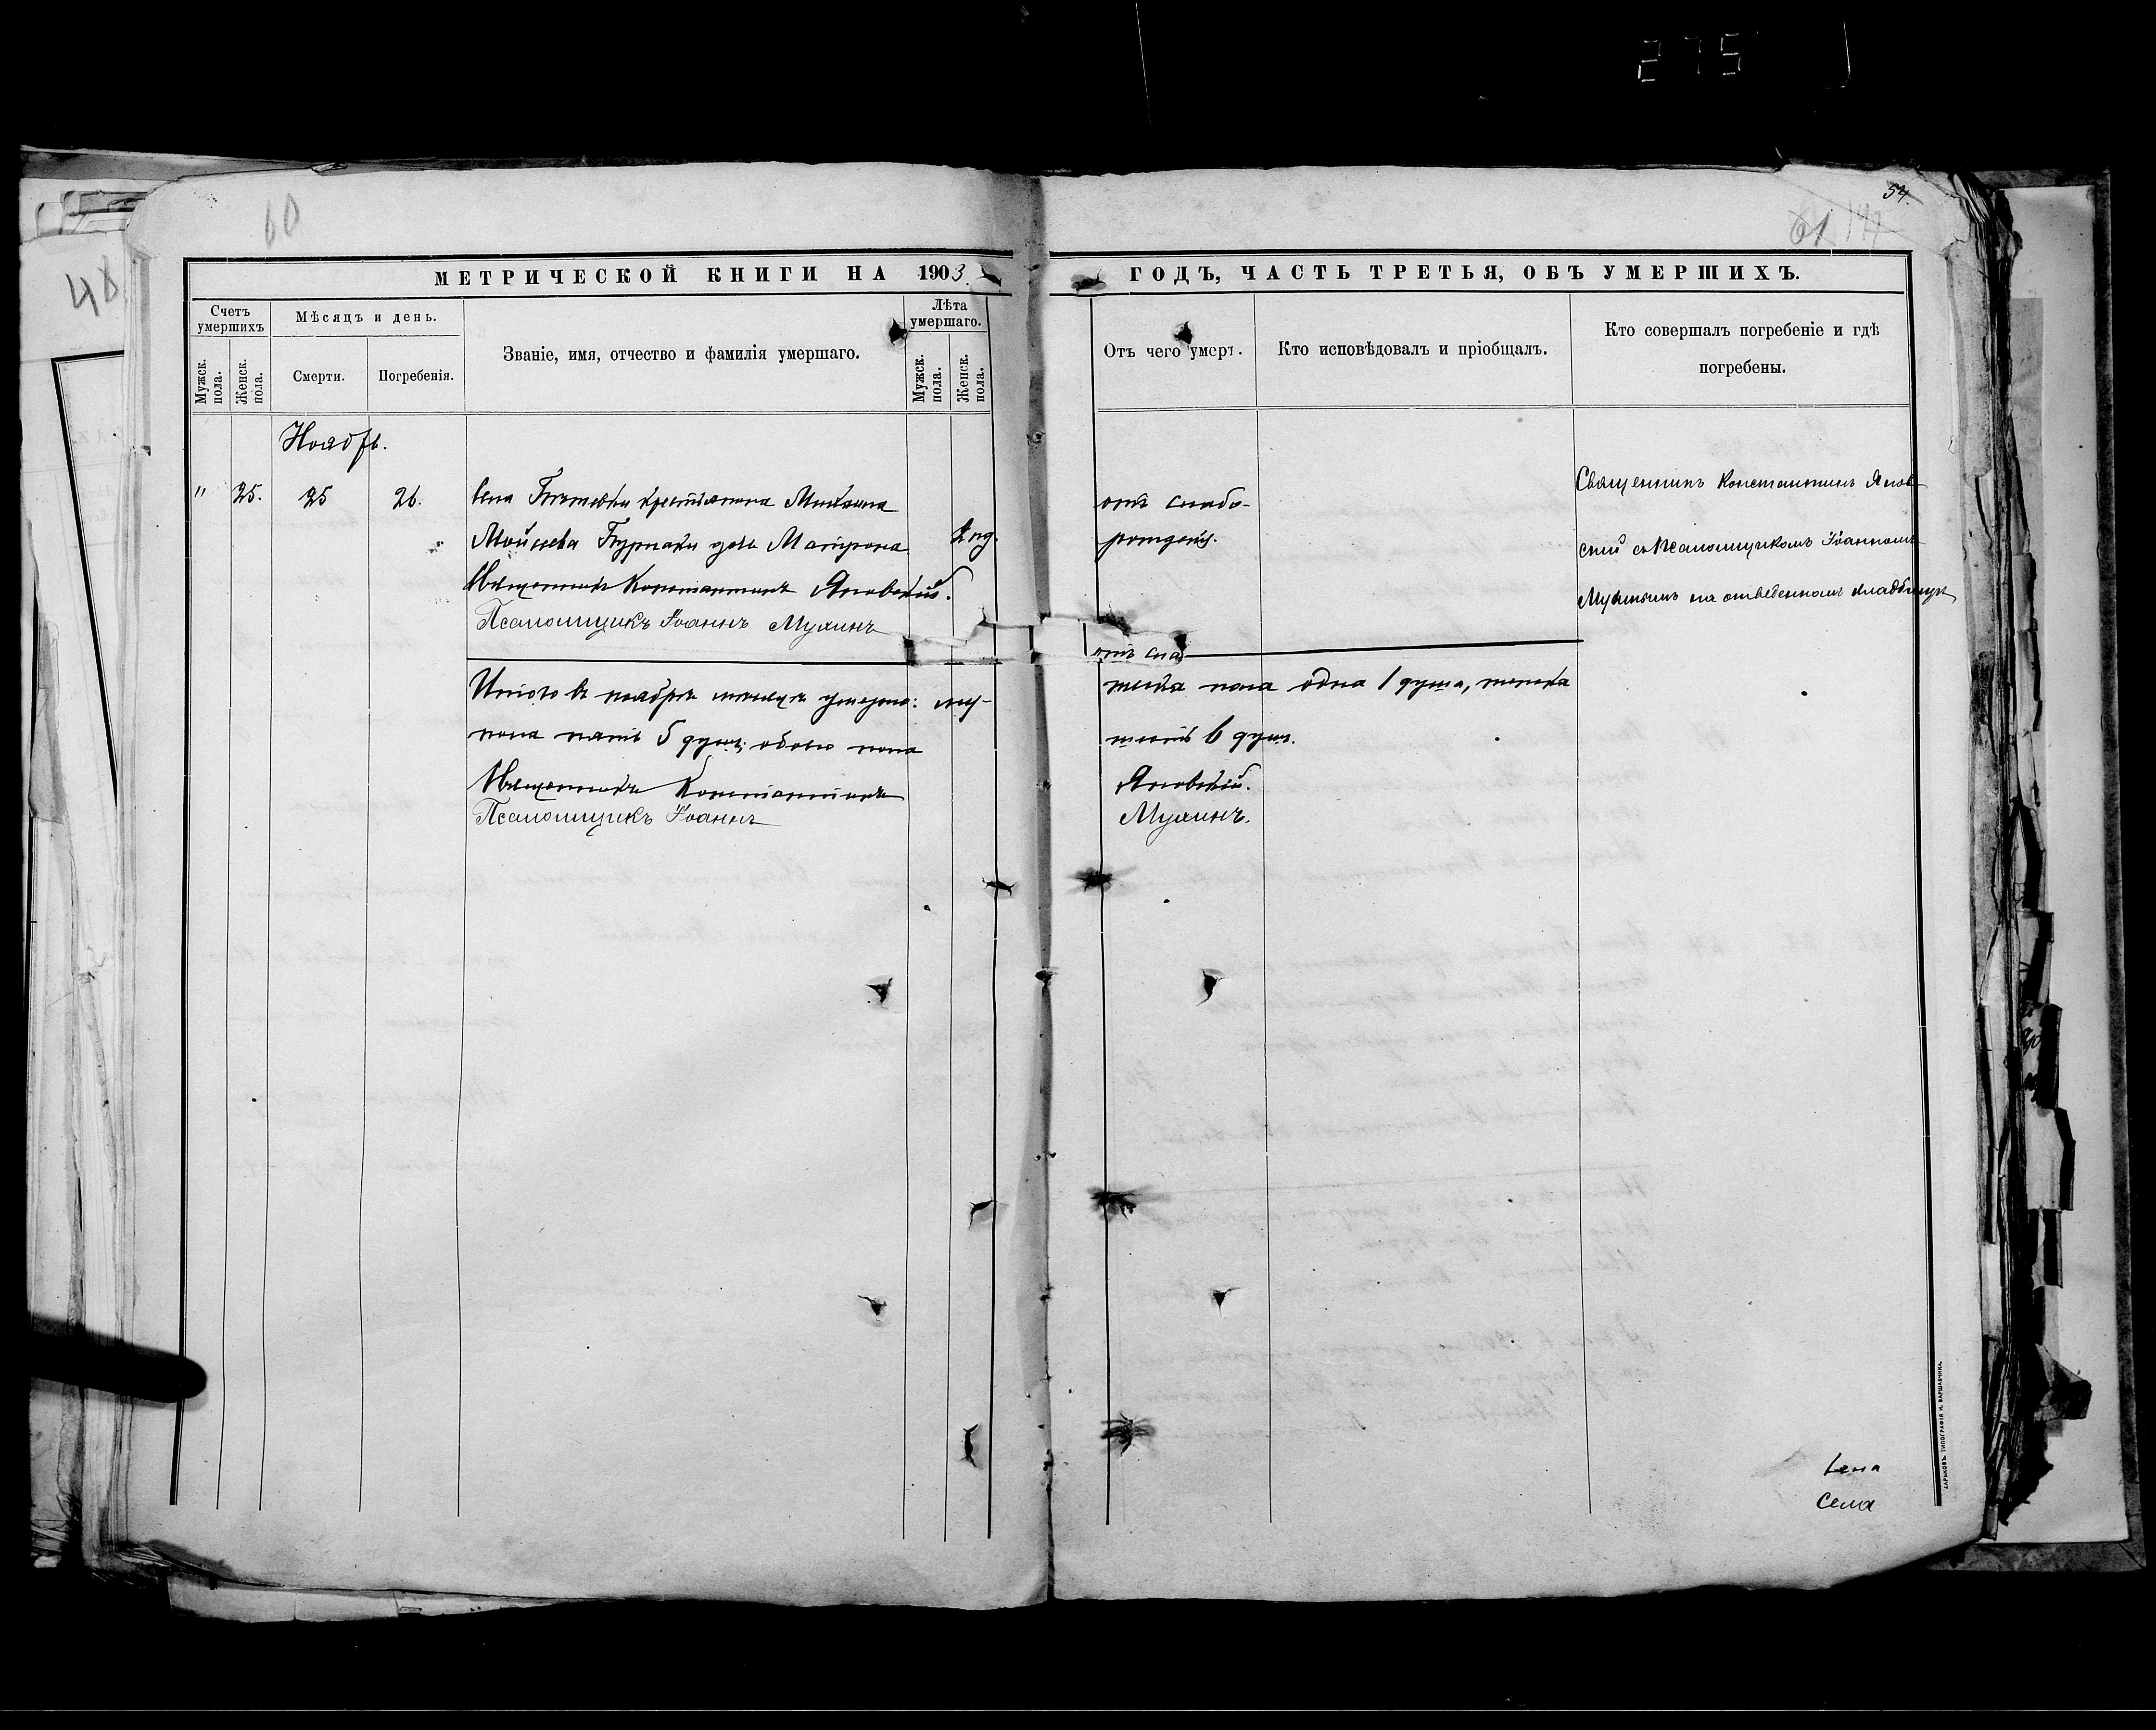 275
60
48
54.
61
МЕТРИЧЕСКОЙ КНИГИ НА 1903.
ГОДЪ, ЧАСТЬ ТРЕТЬЯ, ОБЪ УМЕРШИХЪ.
Счетъ умершихъ
Мужск. пола.
Женск. пола.
Мѣсяцъ и день.
Смерти.
Погребенія.
Званіе, имя, отчество и фамилія умершаго.
Лѣта умершаго.
Мужск. пола.
Женск. пола.
Отъ чего умеръ.
Кто исповѣдовалъ и пріобщалъ.
Кто совершалъ погребеніе и гдѣ погребены.
Ноябрь.
" 25. 25 26. Села крестьянина Михаила
Мойсеева дочь Матрона
Священникъ Константинъ Яновскій.
Псаломщикъ Іоаннъ Мухинъ
2 нд.
отъ слабо-
рожденія.
Священникъ Константинъ Янов
скій съ Псаломщикомъ Іоанномъ
Мухинымъ на отведенномъ кладбищѣ
отъ сла
Итого въ ноябрѣ мѣсяцѣ умерло: му-
жеска пола одна 1 душа, женска
пола пять 5 душъ; обоего пола
шесть 6 душ.
Священникъ Константинъ Яновскій.
Псаломщикъ Іоаннъ Мухинъ.
Села
Села
ХАРЬКОВЪ. ТИПОГРАФІЯ И. ВАРШАВЧИКА.